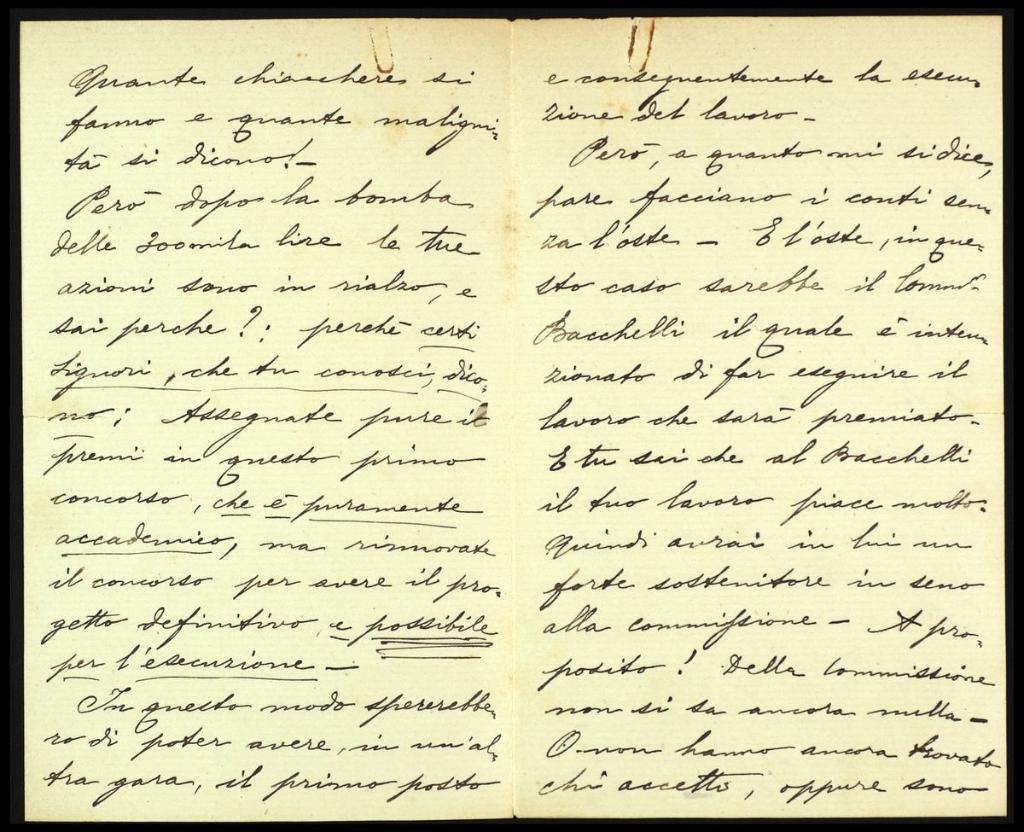 Quante chiacchere si
fanno e quante maligni-
tà si dicono! -
Però dopo la bomba
delle 300mila lire le tue
azioni sono in rialzo, e
sai perche?: perchè certi
signori, che tu conosci, dico-
no: Assegnate pure il
premi in questo primo
concorso, che è puramente
accademico, ma rinnovate
il concorso per avere il pro-
getto definitivo e possibile
per l'esecuzione -
In questo modo spererebbe-
ro di poter avere, in un'al-
tra gara, il primo posto
e conseguentemente la esecu-
zione del lavoro -
Però, a quanto mi si dice,
pare facciano i conti sen-
za l'oste - E l'oste, in que-
sto caso sarebbe il Comm.r
Bacchelli il quale è inten-
zionato di far eseguire il
lavoro che sarà premiato -
E tu sai che al Bacchelli
il tuo lavoro piace molto.
Quindi avrai in lui un
forte sostenitore in seno
alla commissione - A pro-
posito! Della Commissione
non si sa ancora nulla -
O non hanno ancora trovato
chi accetti, oppure sono